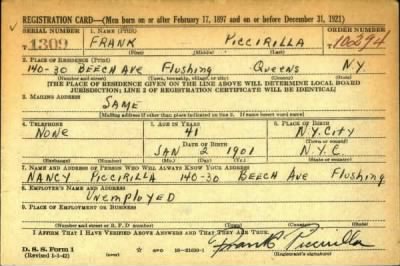 REGISTRATION CARD—(Men born on or after February 17, 1897 and on or before December 31, 1921)
SERIAL NUMBER 1. NAME (Print) ORDER NUMBER
T 1309 FRANK PICCIRILLA 10294
(First) (Middle) (Last)
2. PLACE OF RESIDENCE (Print)
140-30 BEECH AVE Flushing Queens N.Y
(Number and street) (Town, township, village, or city) (County) (State)
[THE PLACE OF RESIDENCE GIVEN ON THE LINE ABOVE WILL DETERMINE LOCAL BOARD
JURISDICTION; LINE 2 OF REGISTRATION CERTIFICATE WILL BE IDENTICAL]
3. MAILING ADDRESS
SAME
[Mailing address if other than place indicated on line 2. If same insert word same]
4. TELEPHONE 5. AGE IN YEARS 6. PLACE OF BIRTH
NONE 41 N.Y.City
DATE OF BIRTH (Town or county)
JAN 2 1901 N.Y.C.
(Exchange) (Number) (Mo.) (Day) (Yr.) (State or country)
7. NAME AND ADDRESS OF PERSON WHO WILL ALWAYS KNOW YOUR ADDRESS
NANCY PICCIRILLA 140-30 BEECH AVE Flushing
8. EMPLOYER'S NAME AND ADDRESS
UNEMPLOYED
9. PLACE OF EMPLOYMENT OR BUSINESS
(Number and street or R. F. D. number) (Town) (County) (State)
I AFFIRM THAT I HAVE VERIFIED ABOVE ANSWERS AND THAT THEY ARE TRUE.
D. S. S. Form 1 Frank Piccirilla
(Revised 1-1-42) (over) (Registrant's signature)